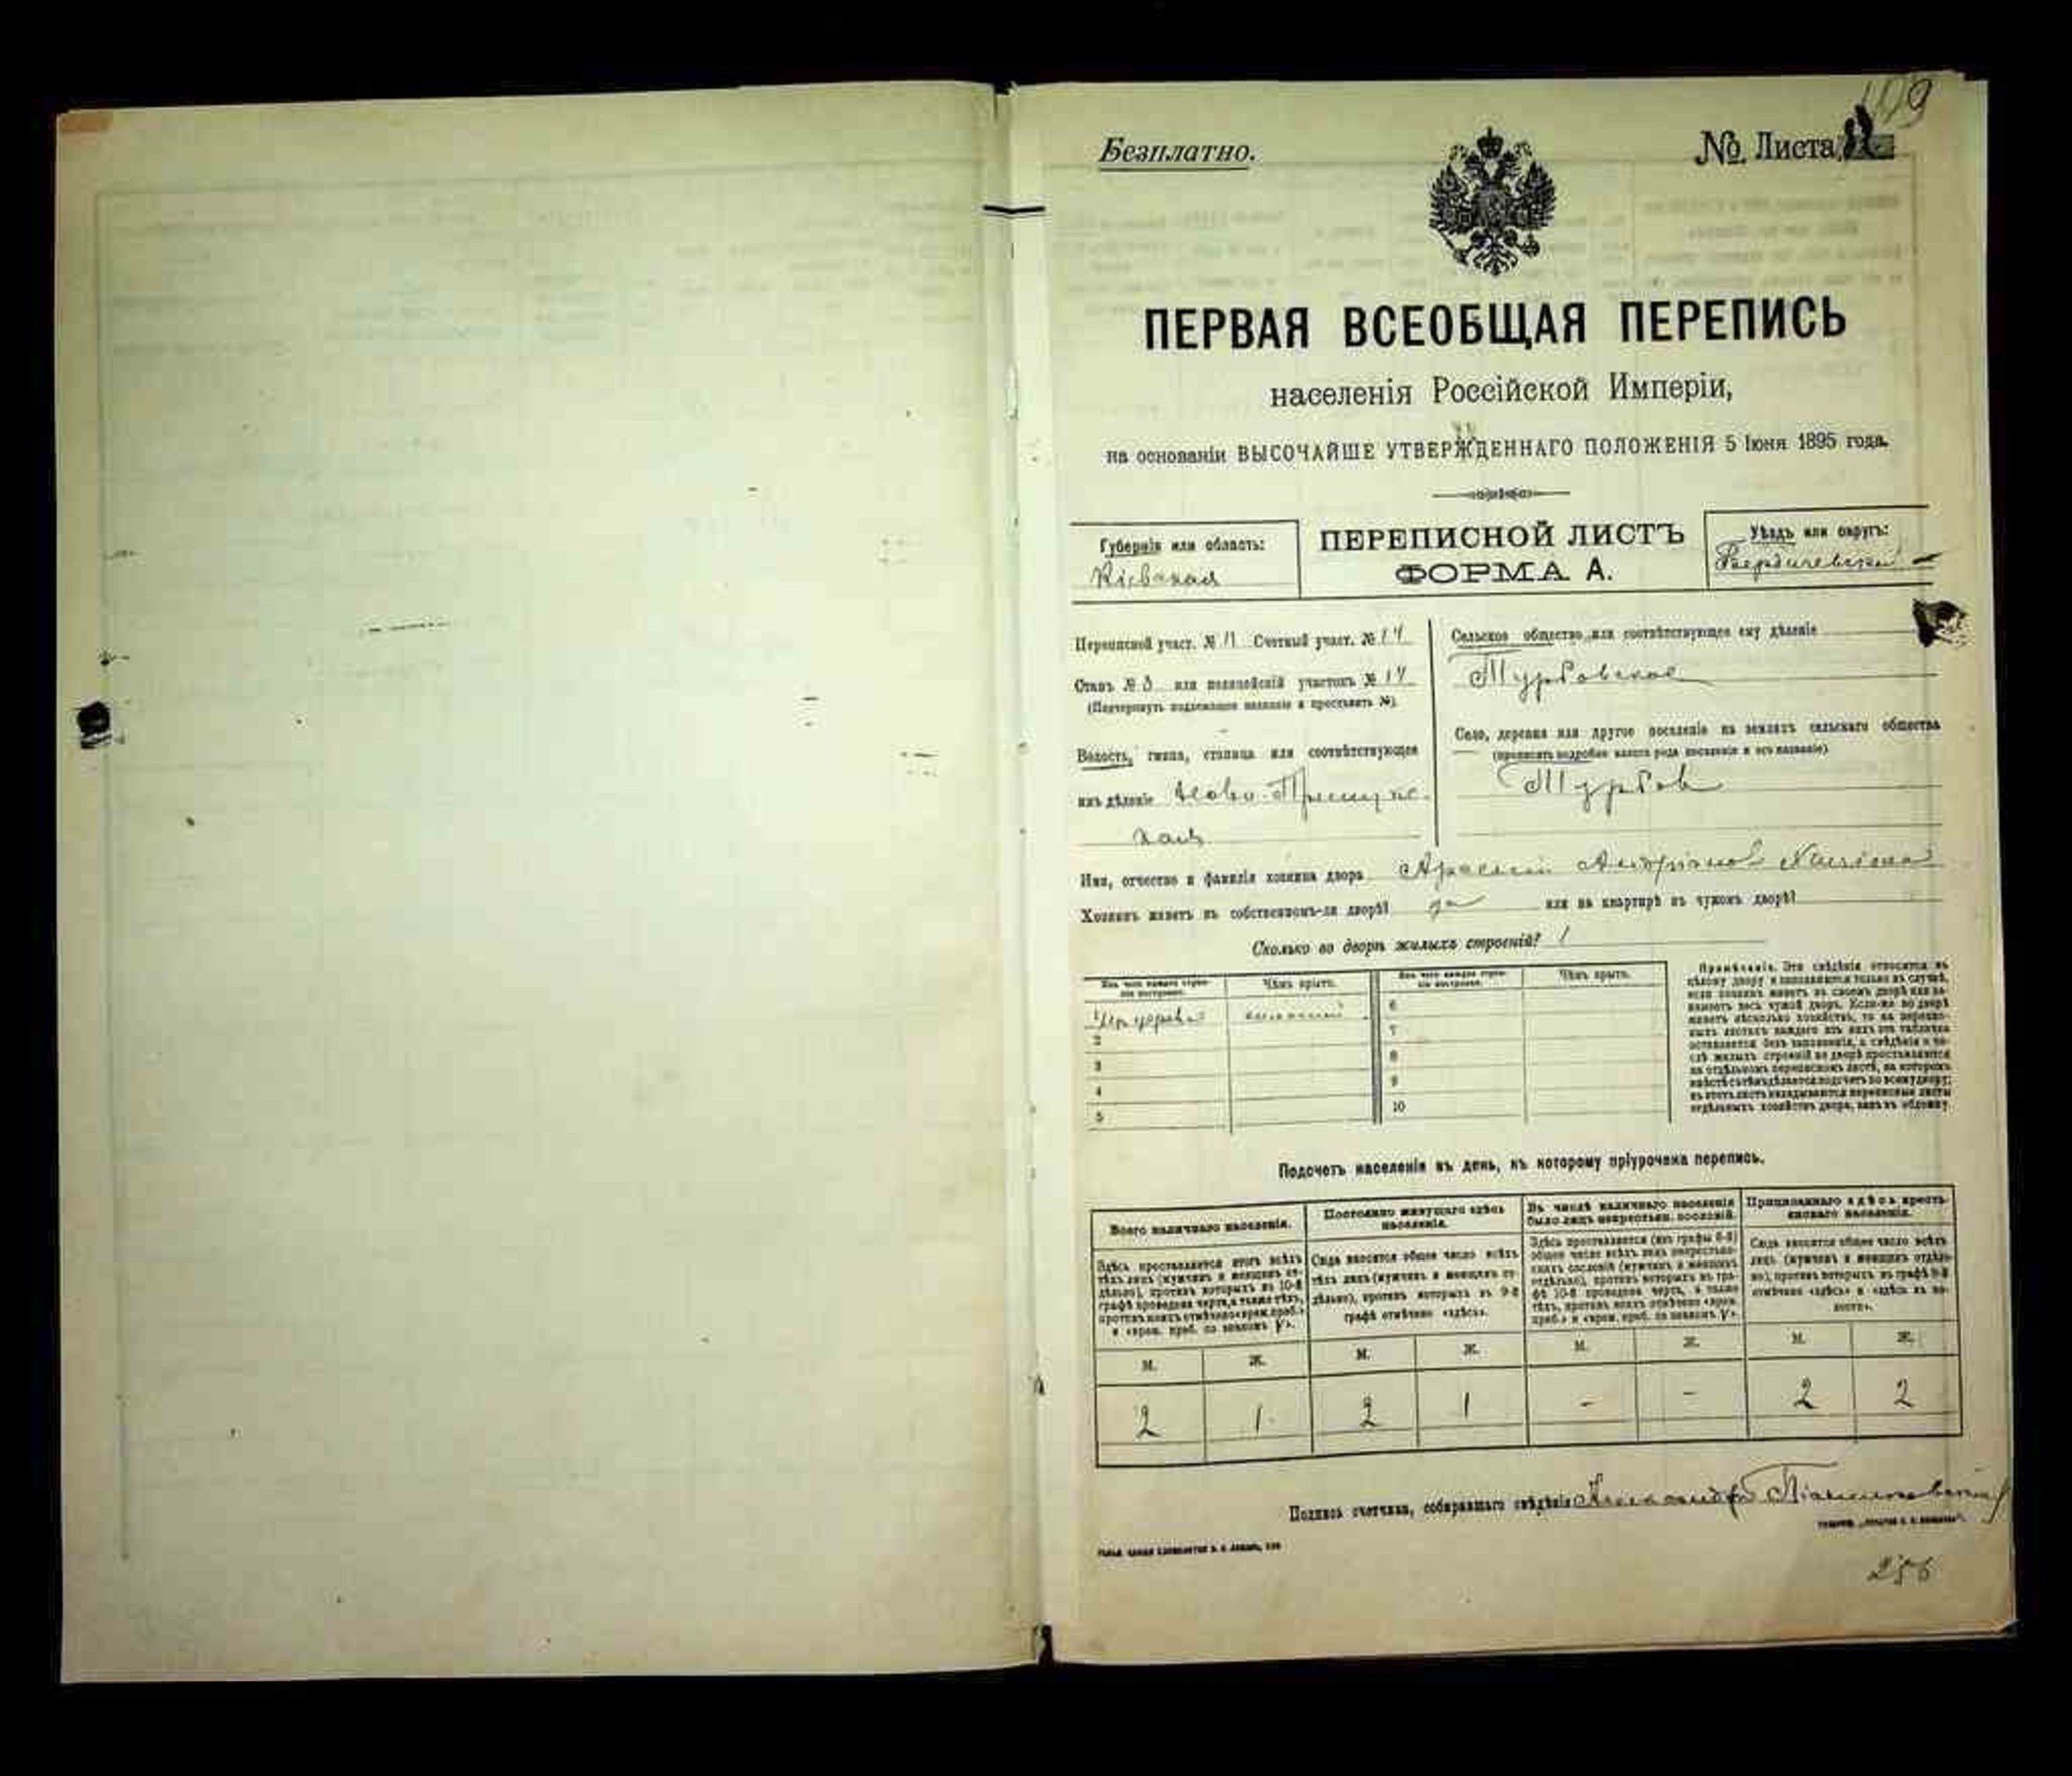 109
Безплатно.
№ Листа
ПЕРВАЯ ВСЕОБЩАЯ ПЕРЕПИСЬ
населенія Россійской Имперіи,
на основаніи ВЫСОЧАЙШЕ УТВЕРЖДЕННАГО ПОЛОЖЕНІЯ 5 Іюня 1895 года.
Губернія или область:
Кіевская
ПЕРЕПИСНОЙ ЛИСТЪ
ФОРМА А.
Уѣздъ или округъ:
Бердичевскій
Переписной участ. № 11 Счетный участ. № 14
Станъ № 3 или полицейскій участокъ № 14
(Подчеркнуть подлежащее названіе и проставить №)
Волость, гмина, станица или соотвѣтствующее
имъ дѣленіе
Сельское общество или соотвѣтствующее ему дѣленіе
Турбовское
Село, деревня или другое поселеніе на земляхъ сельскаго общества
(прописать подробно какого рода поселеніе и его названіе)
Турбов
Имя, отчество и фамилія хозяина двора
Хозяинъ живетъ въ собственномъ-ли дворѣ? да или на квартирѣ въ чужомъ дворѣ?
Сколько во дворѣ жилыхъ строеній? 1
Изъ чего каждое строеніе построено.
Чѣмъ крыто.
Изъ чего каждое строеніе построено.
Чѣмъ крыто.
1 Изъ дерева
2
3
4
5
6
7
8
9
10
Примѣчаніе. Эти свѣдѣнія относятся къ
цѣлому двору и заполняются только въ случаѣ,
если хозяинъ живетъ въ своемъ дворѣ или занимаетъ весь чужой дворъ. Если-же во дворѣ
живетъ нѣсколько хозяйствъ, то на переписныхъ листахъ каждаго изъ нихъ эта табличка
оставляется безъ заполненія, а свѣдѣнія о числѣ жилыхъ строеній во дворѣ проставляются
на отдѣльномъ переписномъ листѣ, на которомъ
вмѣстѣ съ тѣмъ дѣлается подсчетъ по всему двору;
въ этотъ листъ вкладываются переписные листы
отдѣльныхъ хозяйствъ двора, какъ въ обложку.
Подсчетъ населенія въ день, къ которому пріурочена перепись.
Всего наличнаго населенія.
Постоянно живущаго здѣсь населенія.
Въ числѣ наличнаго населенія было лицъ некрестьян. сословій.
Приписаннаго здѣсь крестьянскаго населенія.
Здѣсь проставляется итогъ всѣхъ
тѣхъ лицъ (мужчинъ и женщинъ отдѣльно), противъ которыхъ въ 10-й
графѣ проведена черта, а также тѣхъ,
противъ коихъ отмѣчено «врем. преб.»
и «врем. преб. со знакомъ V».
Сюда вносится общее число всѣхъ
тѣхъ лицъ (мужчинъ и женщинъ отдѣльно), противъ которыхъ въ 9-й
графѣ отмѣчено «здѣсь».
Сюда вносится общее число всѣхъ
лицъ (мужчинъ и женщинъ отдѣльно), противъ которыхъ въ графѣ 8-й
М. Ж. М. Ж. М. Ж. М. Ж.
2 1 2 1 - - 2 2
Подпись счетчика, собиравшаго свѣдѣнія Александръ
256